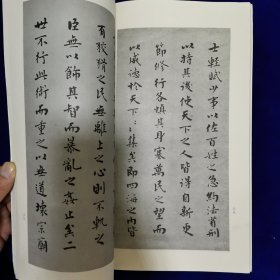 士輕賦少事以佐百姓之急約法省刑
以持其後使天下之人皆得自新更
節修行各慎其身塞萬民之望而
以威德於天下〻集矣即四海之內皆
有狡猾之民無離上之心則不軌之
臣無以飾其智而暴亂之姦止矣二
世不行此術而重之以無道壞宗廟